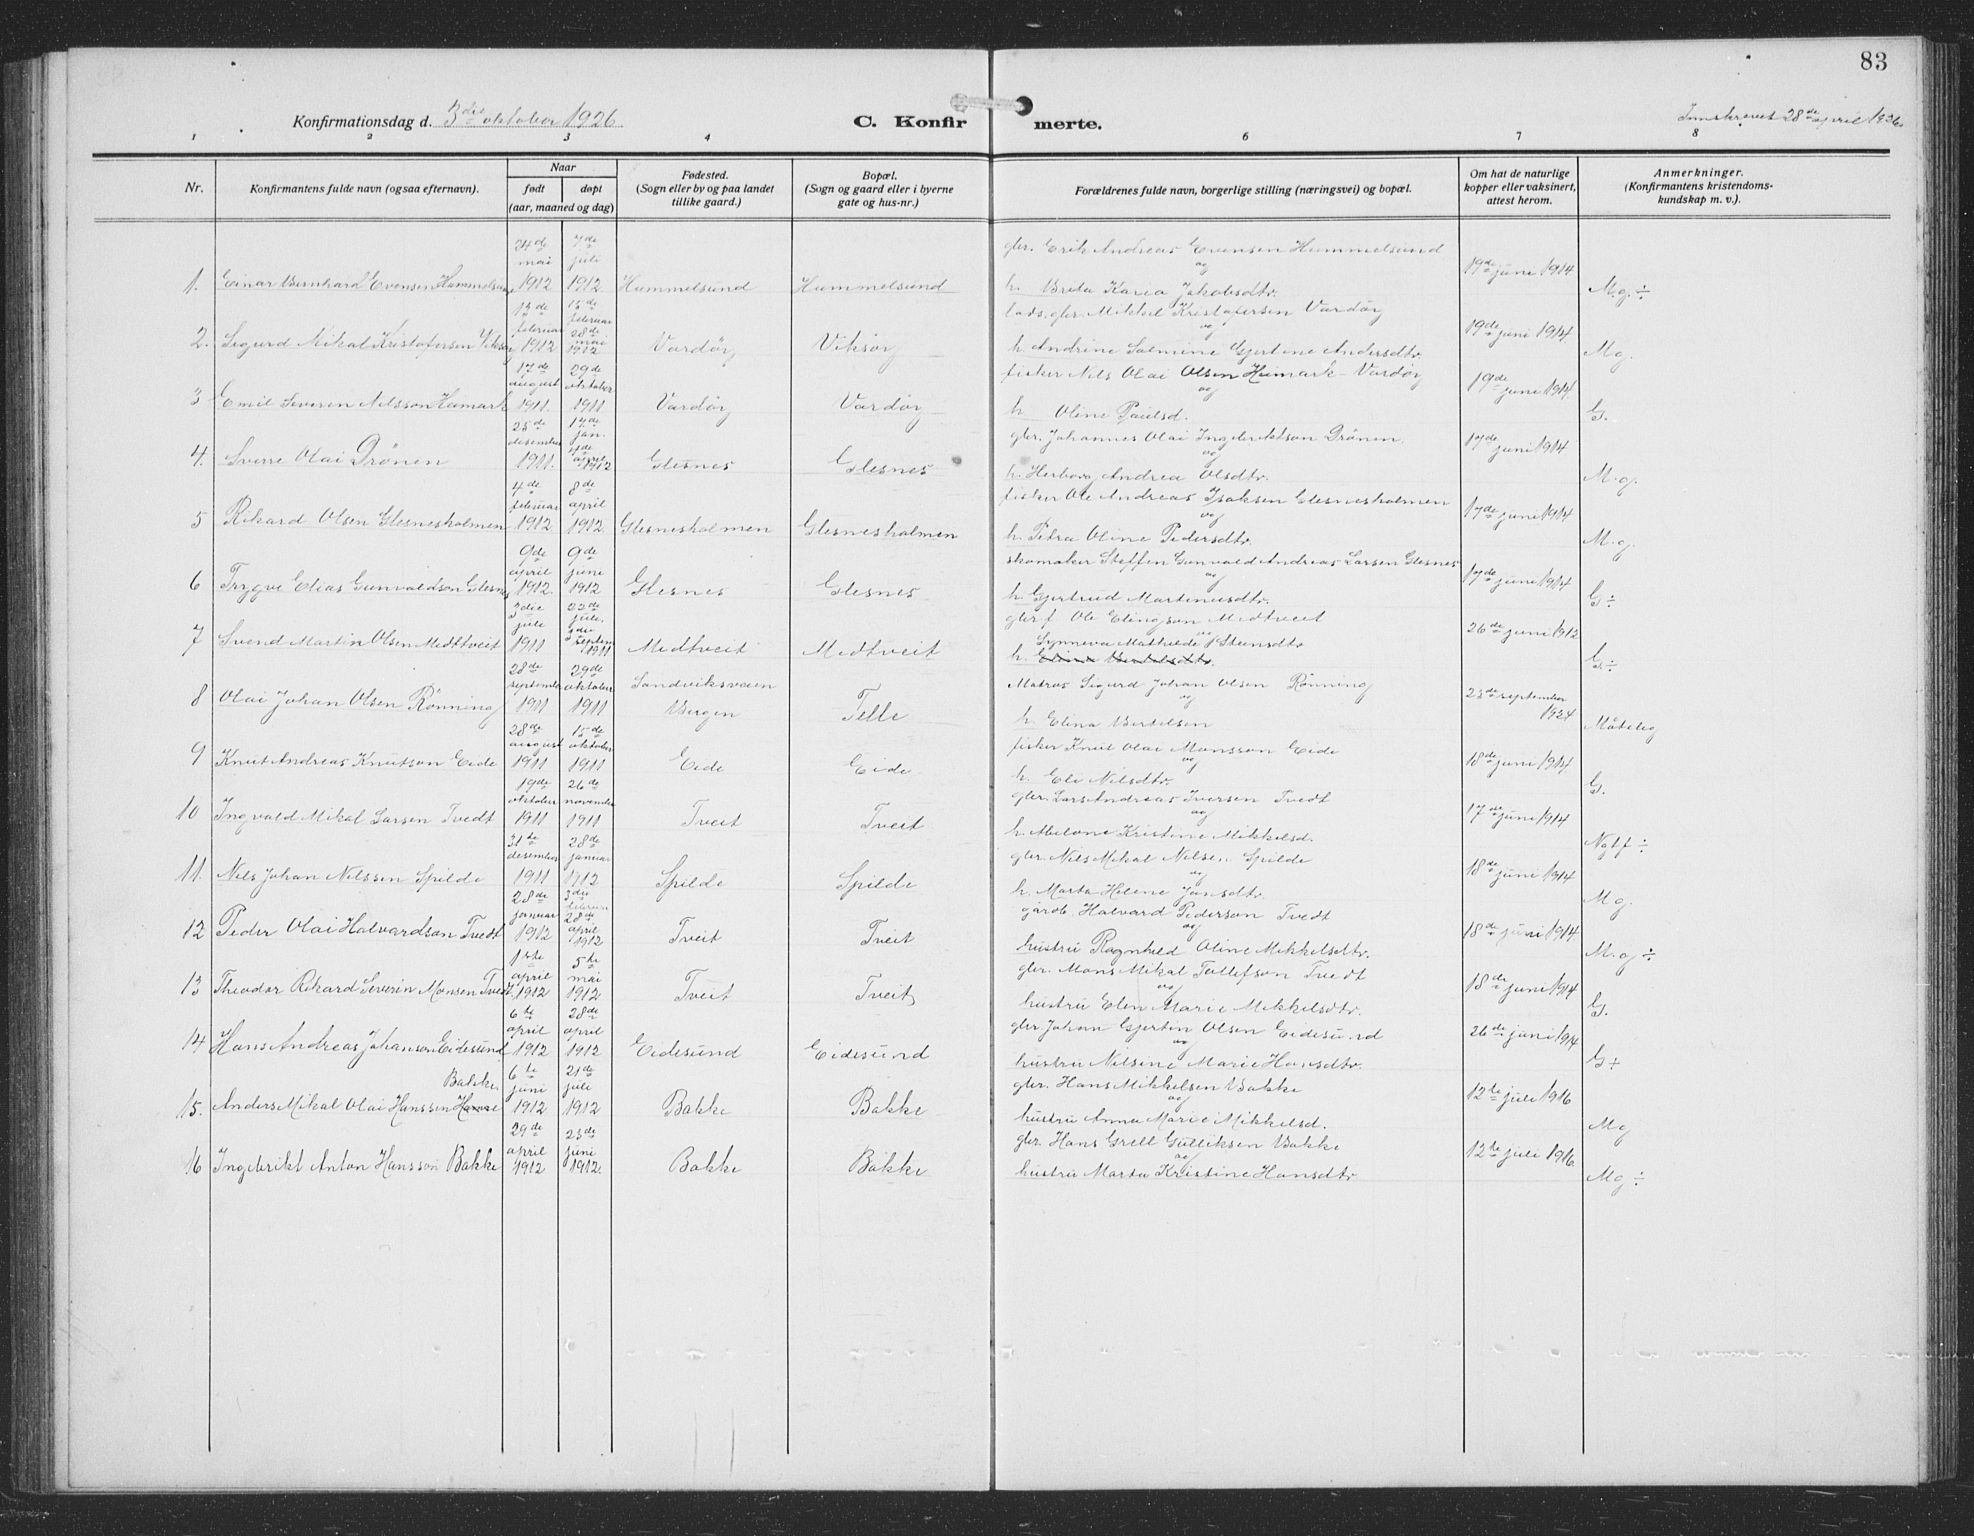 83
Konfirmationsdag d. 3die oktober 1926
C. Konfirmerte.
Innskrevet 28de april 1936.
1 2 3 4 5 6 7 8
Nr. | Konfirmantens fulde navn (ogsaa efternavn). | Naar født | døpt (aar, maaned og dag) | Fødested. (Sogn eller by og paa landet tillike gaard.) | Bopæl. (Sogn og gaard eller i byerne gate og hus-nr.) | Forældrenes fulde navn, borgerlige stilling (næringsvei) og bopæl. | Om hat de naturlige kopper eller vaksinert, attest herom. | Anmerkninger. (Konfirmantens kristendomskundskap m. v.).
1. Einar Bernhard Evensen Hummelsund | 24de mai 1912 | 7de juli 1912. | Hummelsund | Hummelsund | gbr. Erik Andreas Evensen Hummelsund og h. Brita Karia Jakobsdtr. | 19de juni 1914 | M.g. ÷
2. Sigurd Mikal Kristofersen Viksøy | 13de februar 1912 | 15de februar 28de mai 1912 | Vardøy | Viksøy | lods, gbr. Mikkel Kristofersen Vardøy og h. Andrine Salmine Gjertine Andersdtr. | 19de juni 1914 | Mg.
3 Emil Severin Nilsson Hamark | 17de august 1911. | 29de oktober 1911 | Vardøy | Vardøy | fisker Nils Olai Olsen Heimark - Vardøy og h. Oline Paulsd. | 19de juni 1914 | G.
4. Sverre Olai Drönen | 25de desember 1911. | 14de jan. 4de april 1912 | Glesnes | Glesnes | gbr. Johannes Olai Ingebriktson Drönen. og h. Herborg Andrea Olsdtr. | 17de juni 1914 | M.g.
5 Rikard Olsen Glesnesholmen | 4de februar 1912 | 8de april 1912 | Glesnesholmen | Glesnesholmen | fisker Ole Andreas Isaksen Glesnesholmen og h. Petra Oline Pedersdtr. | 17de juni 1914 | M.g.
6 Trygve Elias Gunvaldson Glesnes | 9de april 1912. | 9de juni 1912 | Glesnes | Glesnes | skomaker Steffen Gunvald Andreas Larsen Glesnes og h. Gjertrud Martinusdtr. | 17de juni 1914 | G ÷
7 Svend Martin Olsen Midttveit | 3die juli 1911 | 23de juli, 3die septem 1911 | Midtveit | Midtveit | gbr f. Ole Elingson Midtveit og Synneva Mathilde Steinsdtr h. Elina Bertelsdtr. | 26de juni 1912 | G. ÷
8 Olai Johan Olsen Rönning | 28de september 1911 | 29de oktober 1911 | Sandviksveien Bergen | Telle | Matros Sigurd Johan Olsen Rönning og h. Elina Bertelsen | 23de september 1924 | Måtelig
9 Knut Andreas Knutson Eide | 28de august 1911 | 15de oktober 1911 | Eide | Eide | fisker Knut Olai Monsson Eide og h. Eli Nilsdtr. | 18de juni 1914 | G.
10 Ingvald Mikal Larsen Tvedt | 19de oktober 1911 | 26de november 1911 | Tveit | Tveit | gbr. Lars Andreas Iversen Tvedt og h. Abelone Kristine Mikkelsd. | 17de juni 1914 | Ngtf ÷
11. Nils Johan Nilssen Spilde | 31te desember 1911 | 28de januar 1912 | Spilde | Spilde | gbr. Nils Mikal Nilsen Spilde og h. Marta Helene Jansdtr. | 18de juni 1914 | M g.
12 Peder Olai Halvardson Tvedt | 28de januar 1912 | 3die februar 28de april 1912 | Tveit | Tveit | gårdb. Halvard Pederson Tvedt og hustru Ragnhild Oline Mikkelsdtr. | 18de juni 1914. | M. g ÷
13 Theodor Rikard Severin Monsen Tvedt | 13te april 1912 | 5te mai 1912 | Tveit | Tveit | gbr. Mons Mikal Tollefson Tvedt og hustru Elen Marie Mikkelsdtr. | 18de juni 1914 | G.
14 Hans Andreas Johanson Eidesund | 6te april 1912 | 28de april 1912 | Eidesund | Eidesund | gbr Johan Gjertin Olsen Eidesund og hustru Nilsine Marie Hansdtr. | 26de juni 1914 | G ÷
15. Anders Mikal Olai Hanssen Bakke | 6te juni 1912 | 21de juli 1912 | Bakke | Bakke | gbr. Hans Mikkelsen Bakke og hustru Anna Marie Mikkelsd. | 12te juli 1916 | Mg
16 Ingebrikt Anton Hansson Bakke | 29de april 1912 | 23de juni 1912. | Bakke | Bakke | gbr. Hans Grell Gulliksen Bakke og hustru Marta Kristine Hansdtr | 12te juli 1916. | Mg ÷